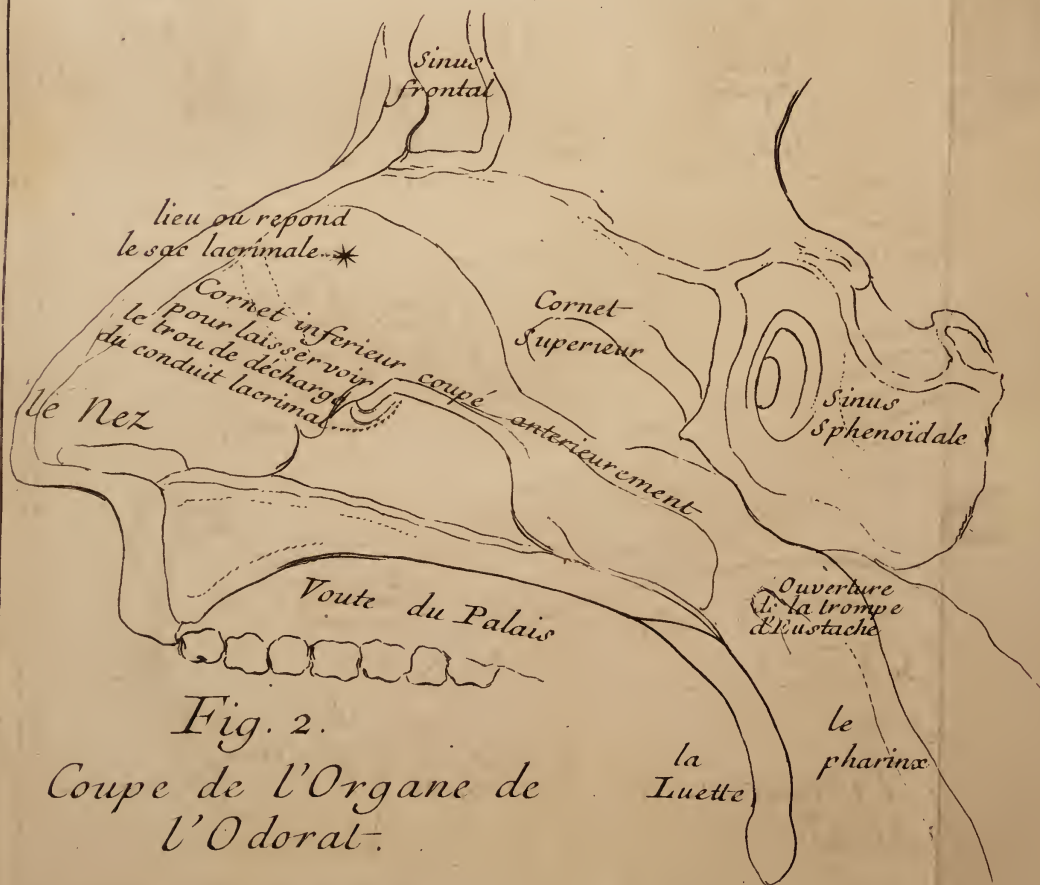 Sinus
frontal
lieu ou repond
le sac lacrimale
Cornet inferieur coupé anterieurement
pour laisser voir
le trou de décharge
du conduit lacrimal
Cornet
Superieur
le Nez
Sinus
Sphenoïdale
Voute du Palais
Ouverture
de la trompe
d'Eustache
le
pharinx
la
Luette
Fig. 2.
Coupe de l'Organe de
l'Odorat.